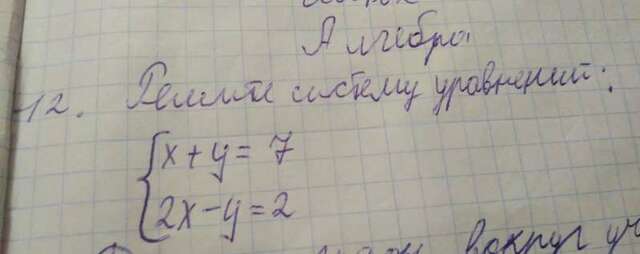 Алгебра
12. Решите систему уравнений:
x+y=7
2x-y=2
вокруг